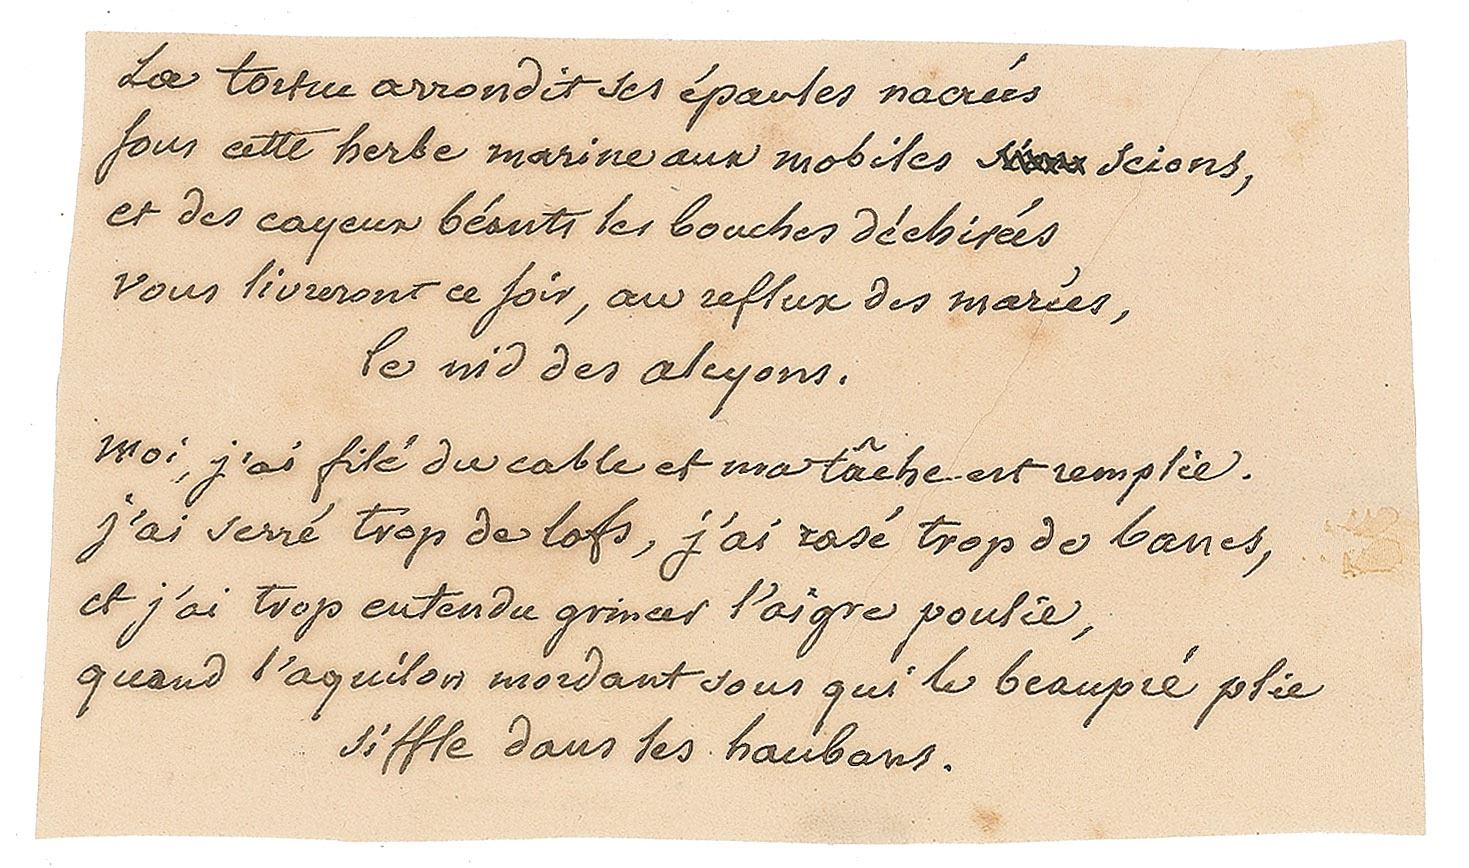 La tortue arrondit ses épaules nacrées
sous cette herbe marine aux mobiles scions,
et des cayeux béants les bouches déchirées
vous livreront ce soir, au reflux des marées,
le nid des alcyons.
Moi, j'ai filé du cable et ma tâche est remplie.
j'ai serré trop de lofs, j'ai rasé trop de bancs,
et j'ai trop entendu grincer l'aigre poulie,
quand l'aquilon mordant sous qui le beaupré plie
siffle dans les haubans.